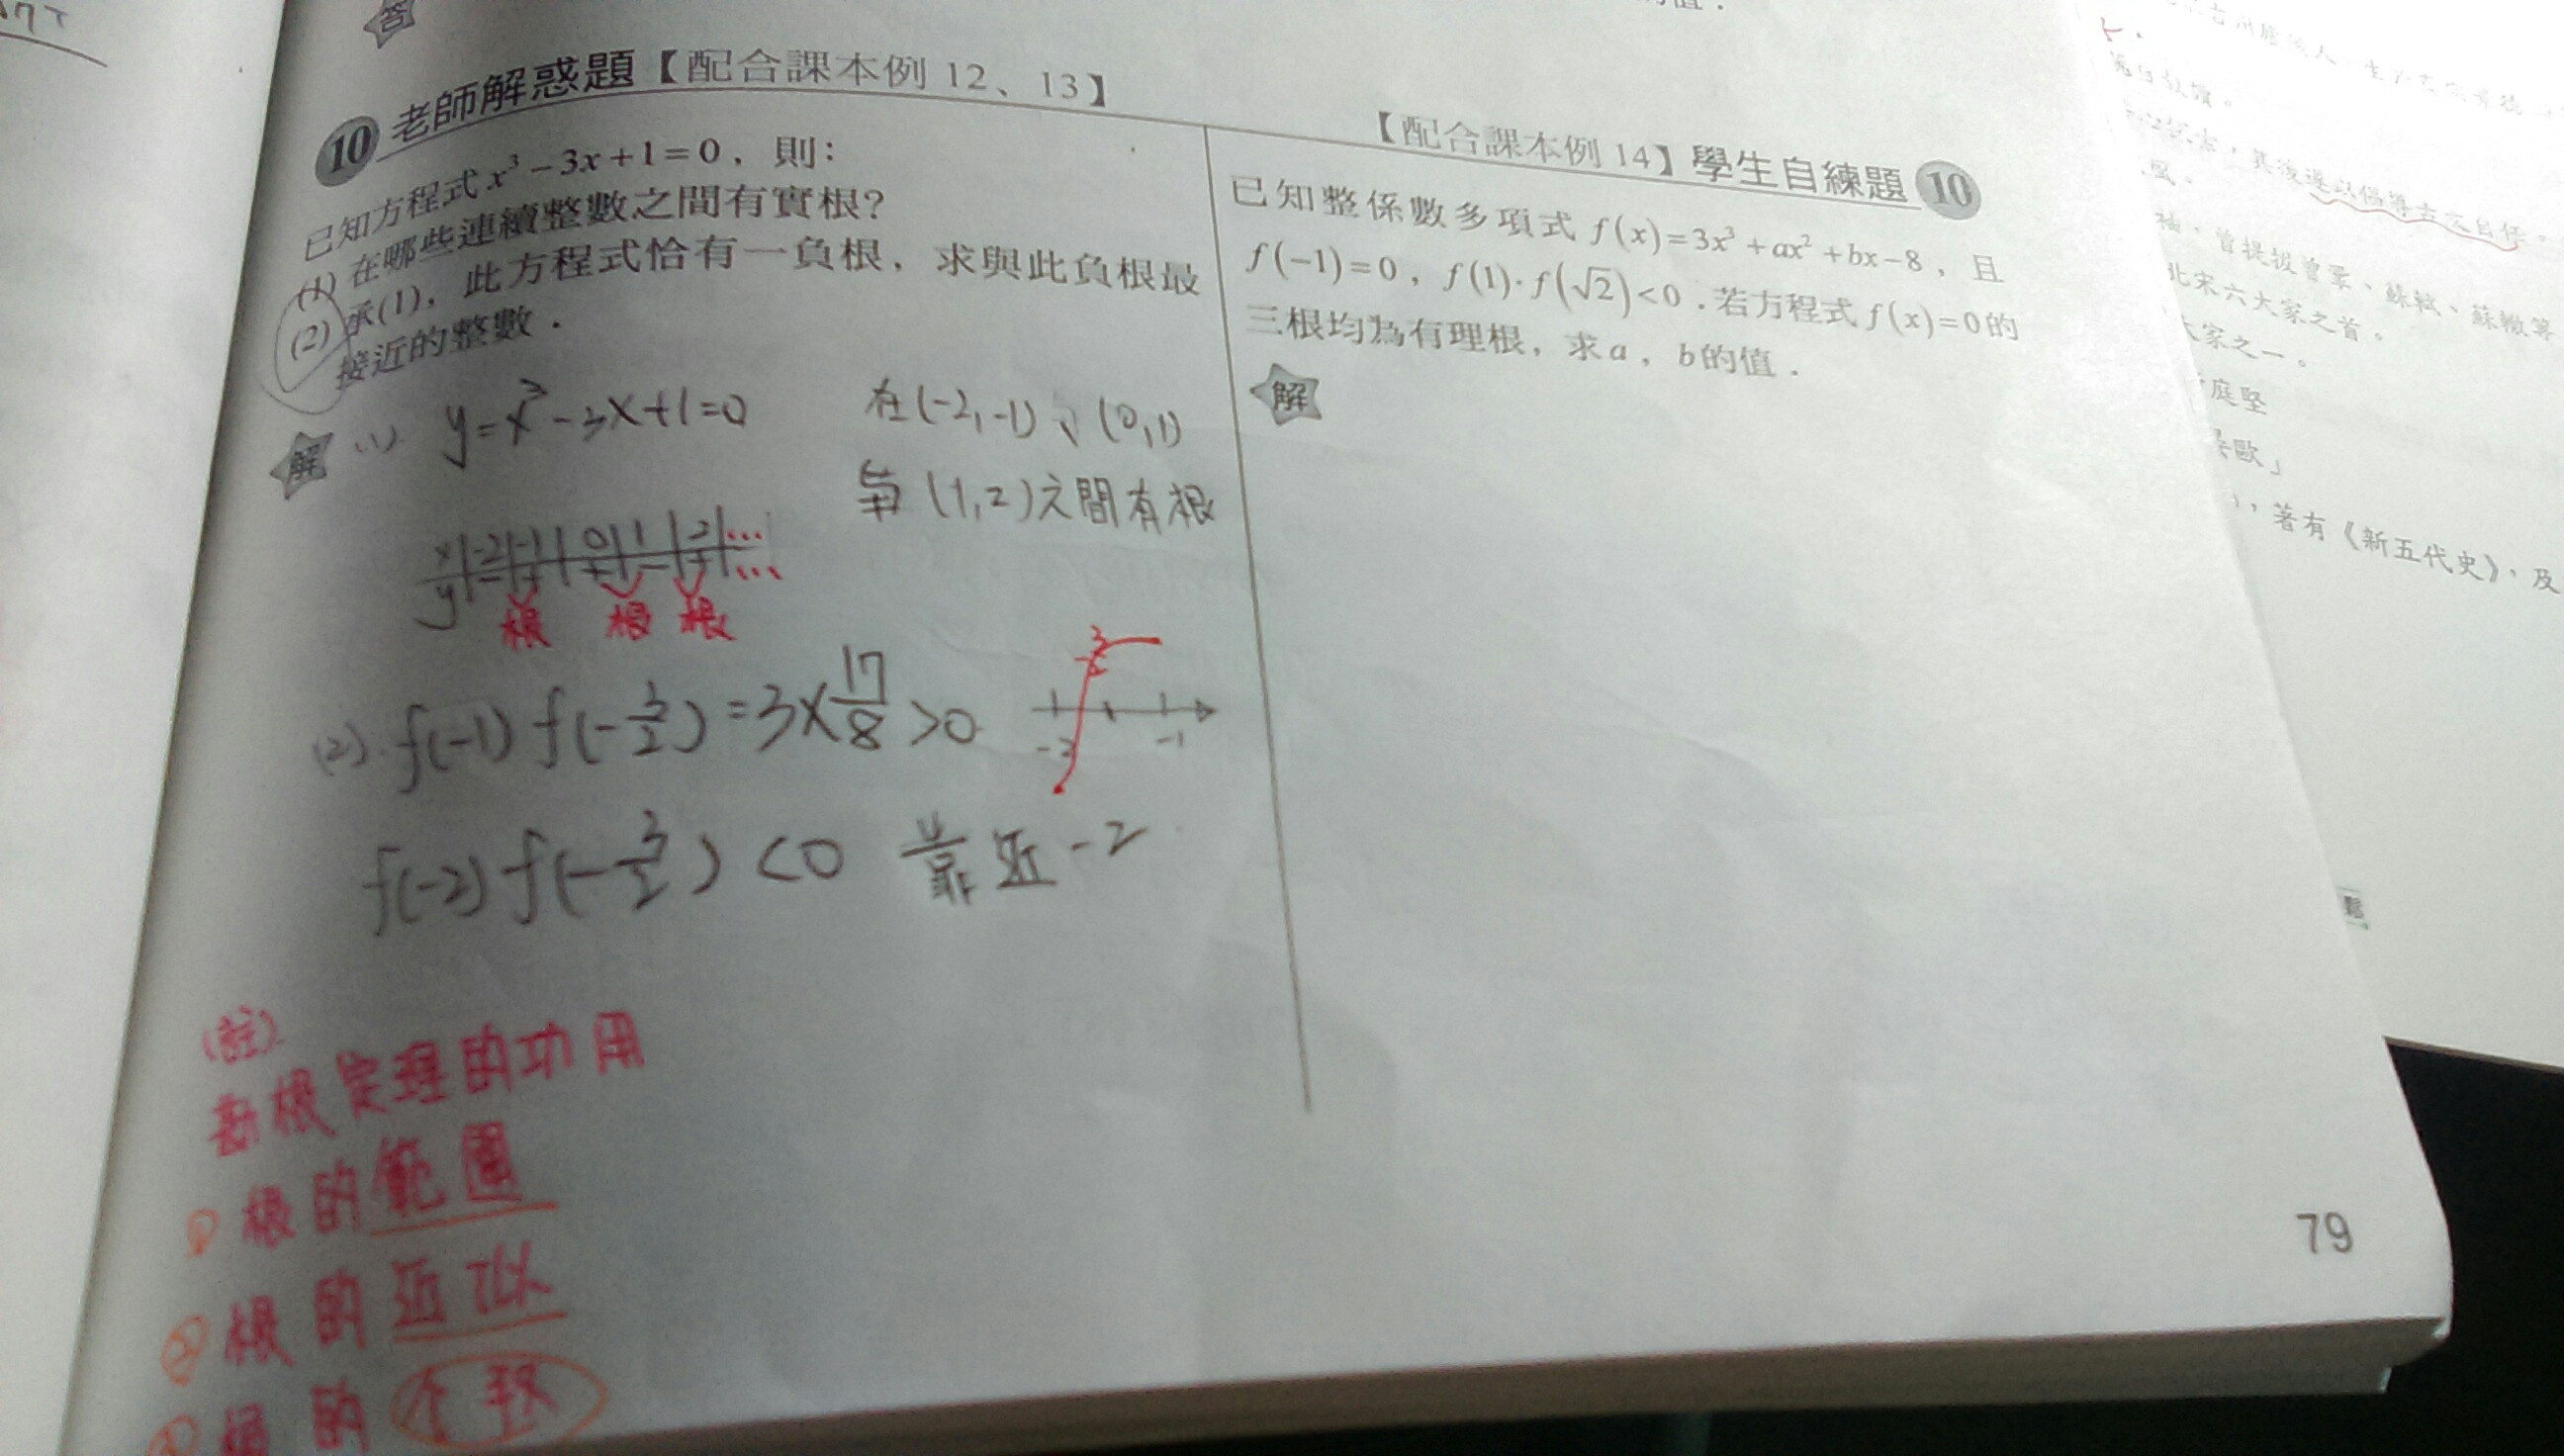 答
10 老師解惑題【配合課本例 12、13】
已知方程式 x³－3x＋1＝0，則：
(1) 在哪些連續整數之間有實根？
(2) 承(1)，此方程式恰有一負根，求與此負根最
接近的整數．
解 (1). y=x³-3x+1=0
在(-2,-1)、(0,1)
與(1,2)之間有根
x|-2|-1|0|1|2|...
y|-|+|+|-|+|...
根 根 根
(2). f(-1) f(-3/2) =3×17/8 >0
-2 -1
f(-2) f(-3/2) <0 靠近-2
(註).
勘根定理的功用
① 根的範圍
② 根的近似
③ 根的个数
【配合課本例 14】學生自練題 10
已知整係數多項式 f(x)=3x³+ax²+bx-8，且
f(-1)=0，f(1)·f(√2)<0．若方程式 f(x)=0的
三根均為有理根，求a，b的值．
解
79
其後遂以倡導古文自任。
曾提拔曾鞏、蘇軾、蘇轍等
北宋六大家之首。
大家之一。
庭堅
歐」
，著有《新五代史》，及